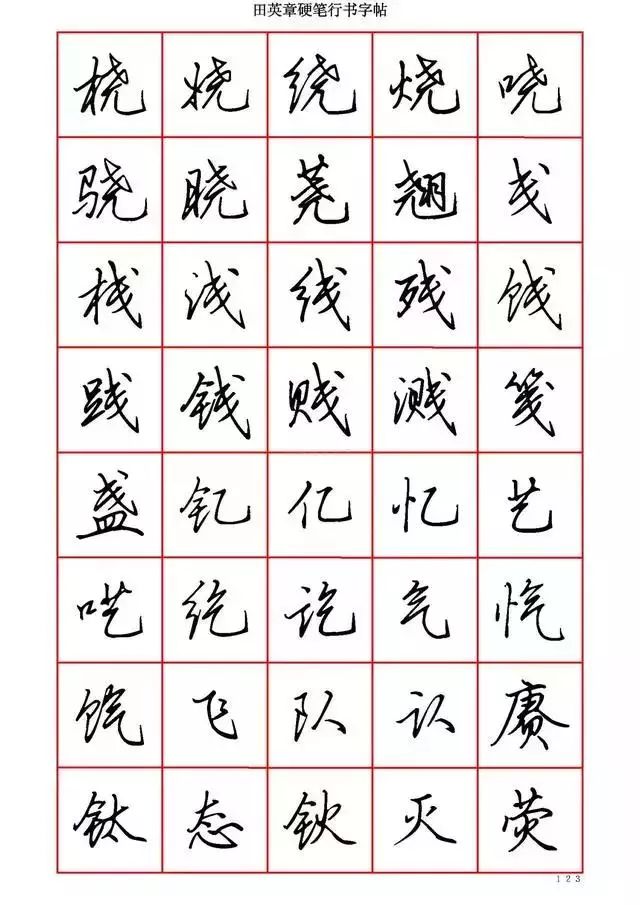 田英章硬笔行书字帖
桡娆绕烧哓
骁晓荛翘戋
栈浅线残饯
践钱贱溅笺
盏钇亿忆艺
呓纥讫气忾
饩飞队认赓
钛态钬灭荧
123